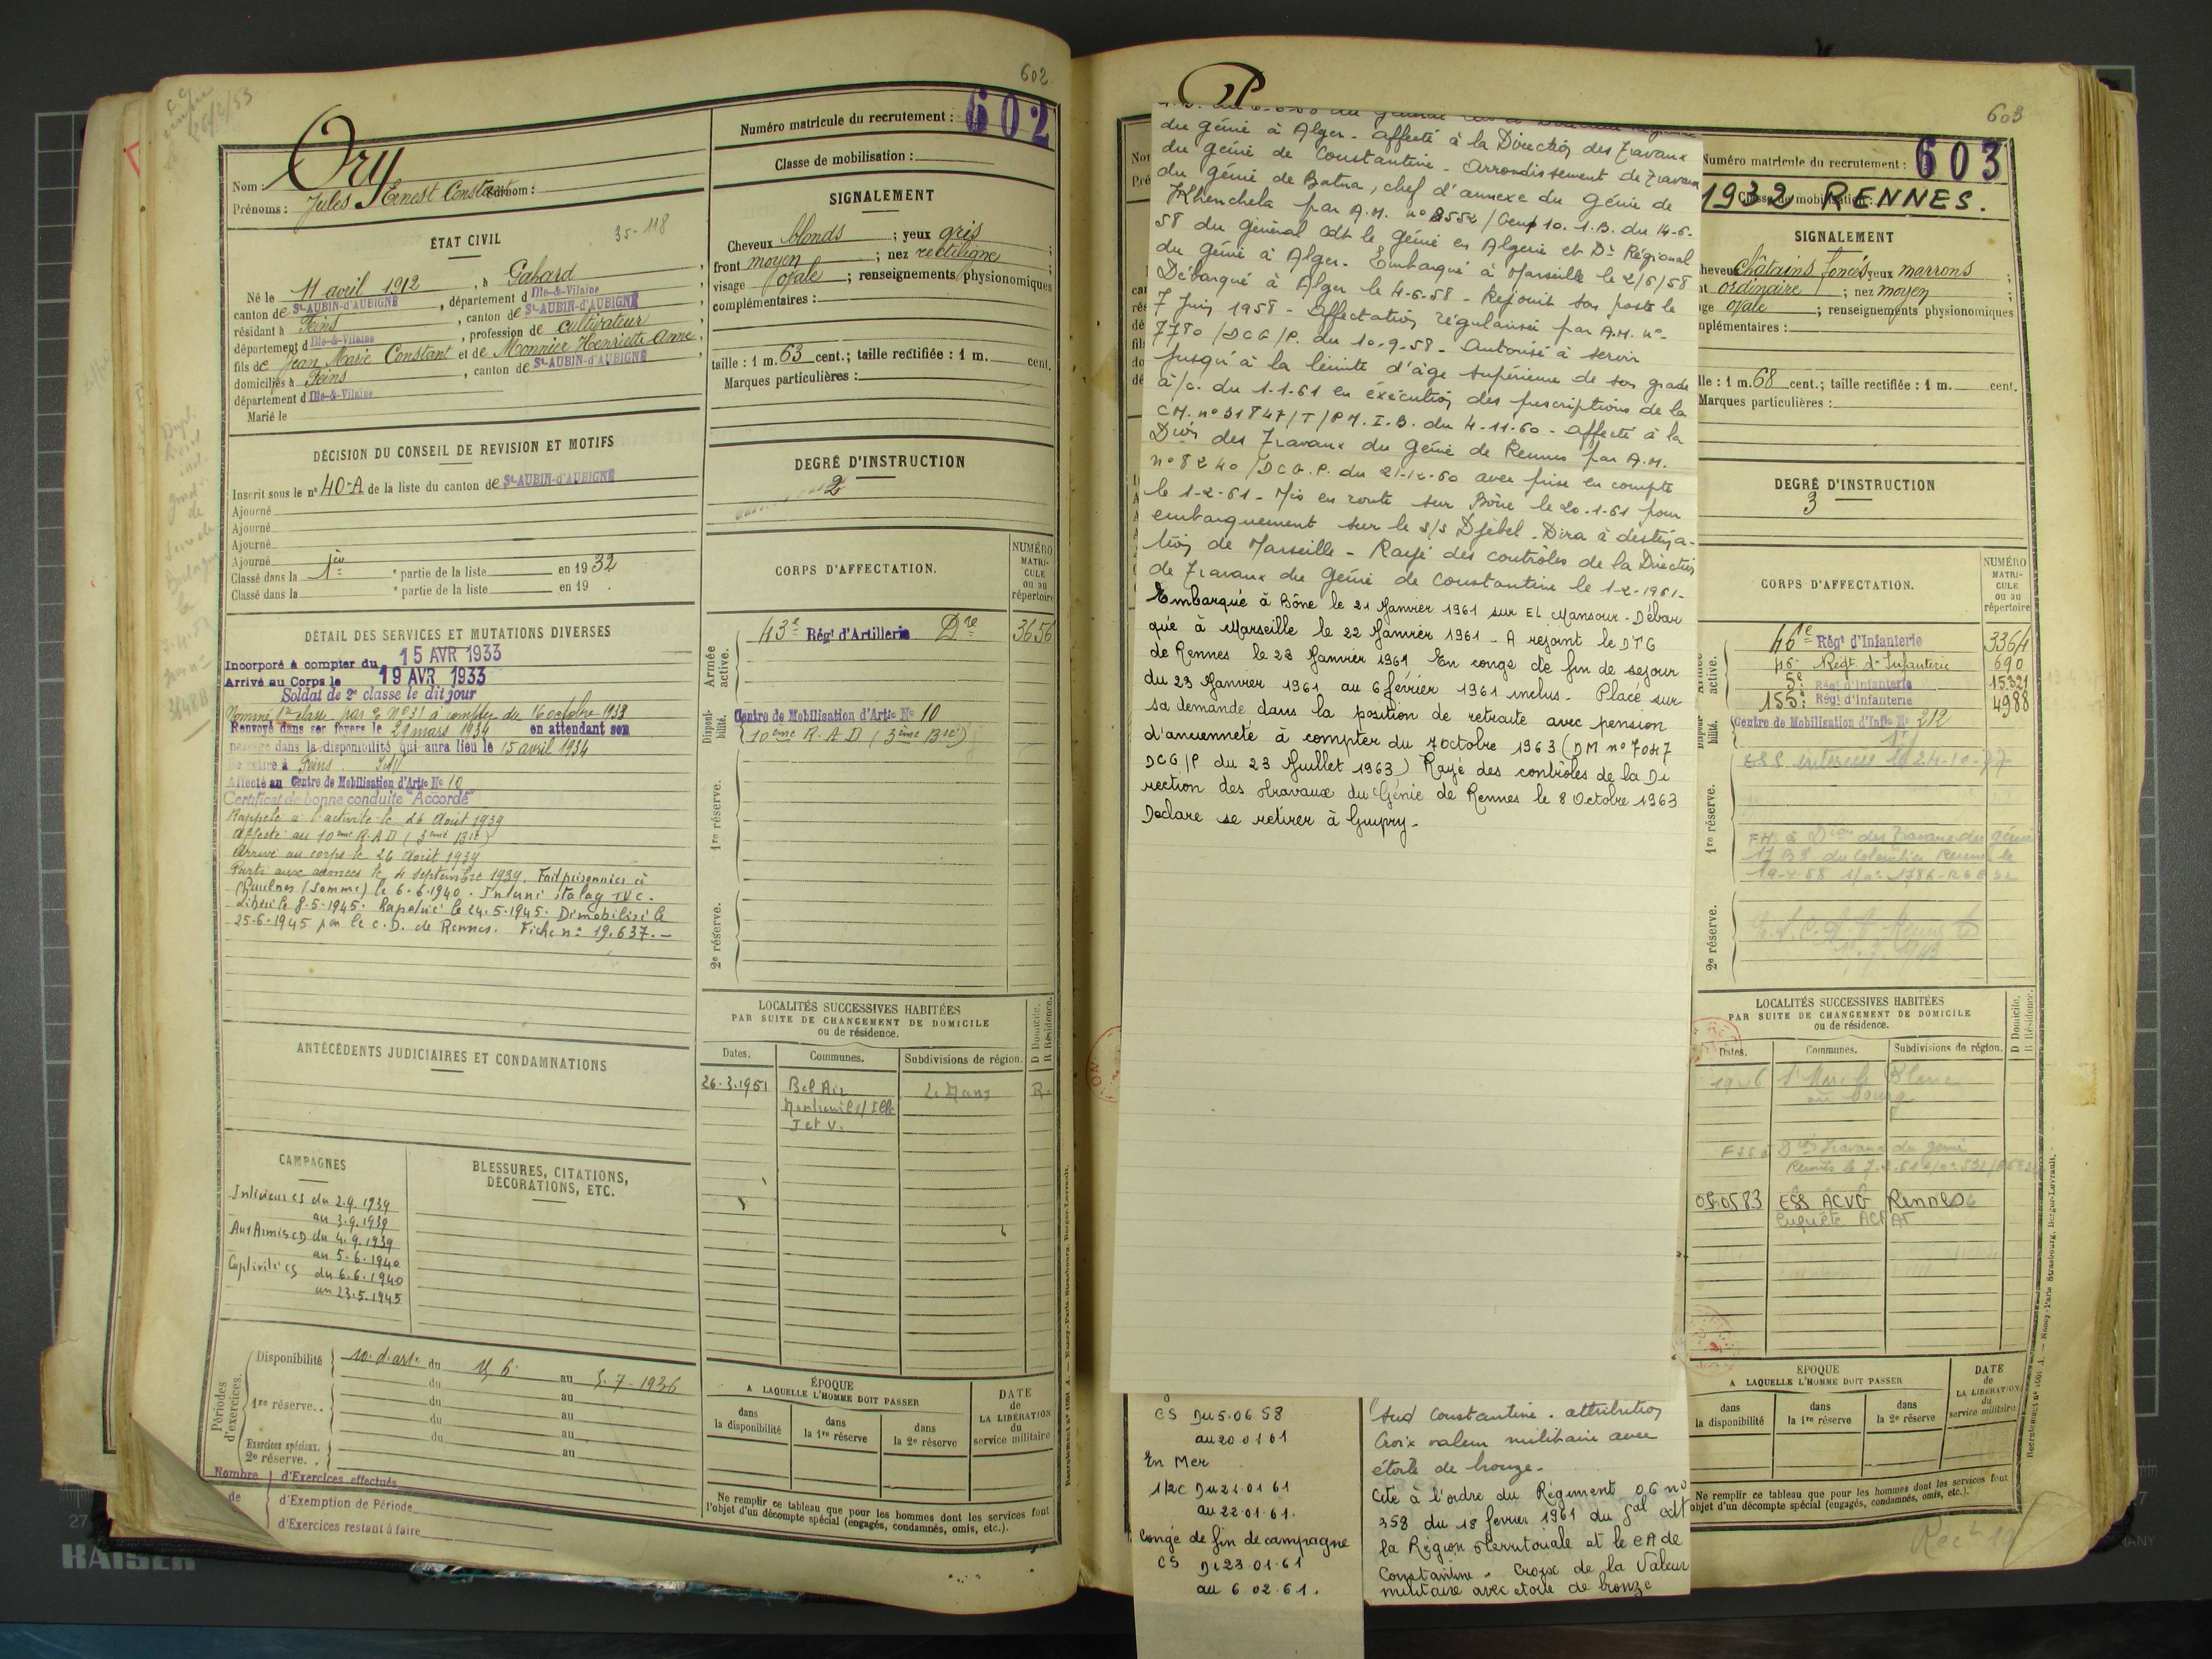 602
Numéro matricule du recrutement : 602
Classe de mobilisation :
Nom : Ory
Prénoms : Jules Ernest Constant Surnom :
ÉTAT CIVIL
35-118
Né le 11 avril 1912, à Gahard,
canton de St-AUBIN-d'AUBIGNÉ, département d Ille-&-Vilaine
résidant à Feins, canton de St-AUBIN-d'AUBIGNÉ
département d Ille-&-Vilaine, profession de cultivateur
fils de Jean Marie Constant et de Monnier Henriette Anne,
domiciliés à Feins, canton de St-AUBIN-d'AUBIGNÉ
département d Ille-&-Vilaine
Marié le
DÉCISION DU CONSEIL DE REVISION ET MOTIFS
Inscrit sous le nº 40-A de la liste du canton de St-AUBIN-d'AUBIGNÉ
Ajourné
Ajourné
Ajourné
Ajourné
Classé dans la 1ère partie de la liste en 1932
Classé dans la e partie de la liste en 19 .
DÉTAIL DES SERVICES ET MUTATIONS DIVERSES
Incorporé à compter du 15 AVR 1933
Arrivé au Corps le 19 AVR 1933
Soldat de 2e classe le dit jour
Nommé 1re classe par Nº 31 à compter du 16 octobre 1933
Renvoyé dans ses foyers le 29 mars 1934 en attendant son
passage dans la disponibilité qui aura lieu le 15 avril 1934
Se retire à Feins I&V
Affecté au Centre de Mobilisation d'Artie Nº 10
Certificat de bonne conduite "Accordé"
Rappelé à l'activité le 26 Août 1939
Affecté au 10ème R.A.D (3ème Bie)
Arrivé au corps le 26 Août 1939
Parti aux armées le 4 septembre 1939. Fait prisonnier à
Chaulnes (Somme) le 6.6.1940. Interné stalag IV C.
Libéré le 8.5.1945. Rapatrié le 24.5.1945. Démobilisé le
25.6.1945 par le C.D. de Rennes. Fiche nº 19.637.-
ANTÉCÉDENTS JUDICIAIRES ET CONDAMNATIONS
CAMPAGNES
Intérieur CS du 2.9.1939
au 3.9.1939
Aux Armées CD du 4.9.1939
au 5.6.1940
Captivité CS du 6.6.1940
au 23.5.1945
BLESSURES, CITATIONS,
DÉCORATIONS, ETC.
Périodes d'exercices.
Disponibilité 10. d'arte du 15 6 au 5.7-1936
1re réserve.. du au
du au
du au
Exercices spéciaux.
2e réserve. . au
Nombre de
d'Exercices effectués
d'Exemption de Période
d'Exercices restant à faire
SIGNALEMENT
Cheveux blonds ; yeux gris ;
front moyen ; nez rectiligne ;
visage ovale ; renseignements physionomiques
complémentaires :
taille : 1 m. 63 cent.; taille rectifiée : 1 m. cent.
Marques particulières :
DEGRÉ D'INSTRUCTION
2
CORPS D'AFFECTATION.
NUMÉRO
MATRI-
CULE
ou au
répertoire
Armée active.
43e Régt d'Artillerie Dre 3656
Disponibilité.
Centre de Mobilisation d'Artie Nº 10
10ème R.A.D (3ème Bie)
1re réserve.
2e réserve.
LOCALITÉS SUCCESSIVES HABITÉES
PAR SUITE DE CHANGEMENT DE DOMICILE
ou de résidence.
D Domicile.
R Résidence.
Dates. Communes. Subdivisions de région.
26.3.1951 Bel Air Le Mans R.
Montreuil s/ Ille
I et V.
ÉPOQUE
A LAQUELLE L'HOMME DOIT PASSER
dans la disponibilité
dans la 1re réserve
dans la 2e réserve
DATE
de
LA LIBÉRATION
du
service militaire
Ne remplir ce tableau que pour les hommes dont les services font
l'objet d'un décompte spécial (engagés, condamnés, omis, etc.).
603
Numéro matricule du recrutement : 603
1932 RENNES.
du génie à Alger. Affecté à la Direction des Travaux
du génie de Constantine. Arrondissement de Travaux
du génie de Batna, chef d'annexe du génie de
Khenchela par A.M. nº 3552/Gen 10. 1.B. du 14-6-
58 du général Cdt le génie en Algérie et Dr Régional
du génie à Alger. Embarqué à Marseille le 2/6/58
Débarqué à Alger le 4-6-58 - Rejoint son poste le
7 Juin 1958 - Affectation régularisée par A.M. nº
7780/DCG/P. du 10.9.58 - Autorisé à servir
jusqu'à la limite d'âge supérieure de son grade
à/c. du 1.1.61 en exécution des prescriptions de la
CM. nº 31847/T/PM.I.B. du 4-11-60 - Affecté à la
Dion des Travaux du génie de Rennes par A.M.
nº 8240/DCG.P. du 21-12-60 avec prise en compte
le 1-2-61 - Mis en route sur Bône le 20.1.61 pour
embarquement sur le s/s Djebel. Dira à destina-
tion de Marseille - Rayé des contrôles de la Direction
de Travaux du génie de Constantine le 1-2-1961-
Embarqué à Bône le 21 Janvier 1961 sur EL Mansour - Débar
qué à Marseille le 22 Janvier 1961 - A rejoint le DTG
de Rennes le 23 Janvier 1961 En congé de fin de sejour
du 23 Janvier 1961 au 6 février 1961 inclus - Placé sur
sa demande dans la position de retraite avec pension
d'ancienneté à compter du 7 octobre 1963 (DM nº 7047
DCG/P du 23 Juillet 1963) Rayé des contrôles de la Di
rection des travaux du Génie de Rennes le 8 Octobre 1963
Declare se retirer à Guipry-
CS Du 5.06 58
au 20 01 61
En Mer
1/2C Du 21.01 61
au 22.01.61.
Congé de fin de campagne
CS Du 23.01.61
au 6.02.61.
Sud Constantine. attribution
Croix valeur militaire avec
étoile de bronze-
Cité à l'ordre du Régiment OG nº
358 du 18 fevrier 1961 du Gal cdt
la Région territoriale et le CA de
Constantine - Croix de la Valeur
militaire avec etoile de bronze
SIGNALEMENT
Cheveux châtains foncés yeux marrons ;
ordinaire ; nez moyen ;
ovale ; renseignements physionomiques
complémentaires :
taille : 1 m. 68 cent.; taille rectifiée : 1 m. cent.
Marques particulières :
DEGRÉ D'INSTRUCTION
3
CORPS D'AFFECTATION.
NUMÉRO
MATRI-
CULE
ou au
répertoire
46e Régt d'Infanterie 3364
46e Régt d'Infanterie 690
5e Régt d'Infanterie 15321
155e Régt d'Infanterie 4988
Centre de Mobilisation d'Infie Nº 212
1re réserve.
2e réserve.
LOCALITÉS SUCCESSIVES HABITÉES
PAR SUITE DE CHANGEMENT DE DOMICILE
ou de résidence.
D Domicile.
R Résidence.
Dates. Communes. Subdivisions de région.
05.05 83 ESS ACVG Rennes
Enquête
ÉPOQUE
A LAQUELLE L'HOMME DOIT PASSER
dans la disponibilité
dans la 1re réserve
dans la 2e réserve
DATE
de
LA LIBÉRATION
du
service militaire
Ne remplir ce tableau que pour les hommes dont les services font
objet d'un décompte spécial (engagés, condamnés, omis, etc.).
KAISER